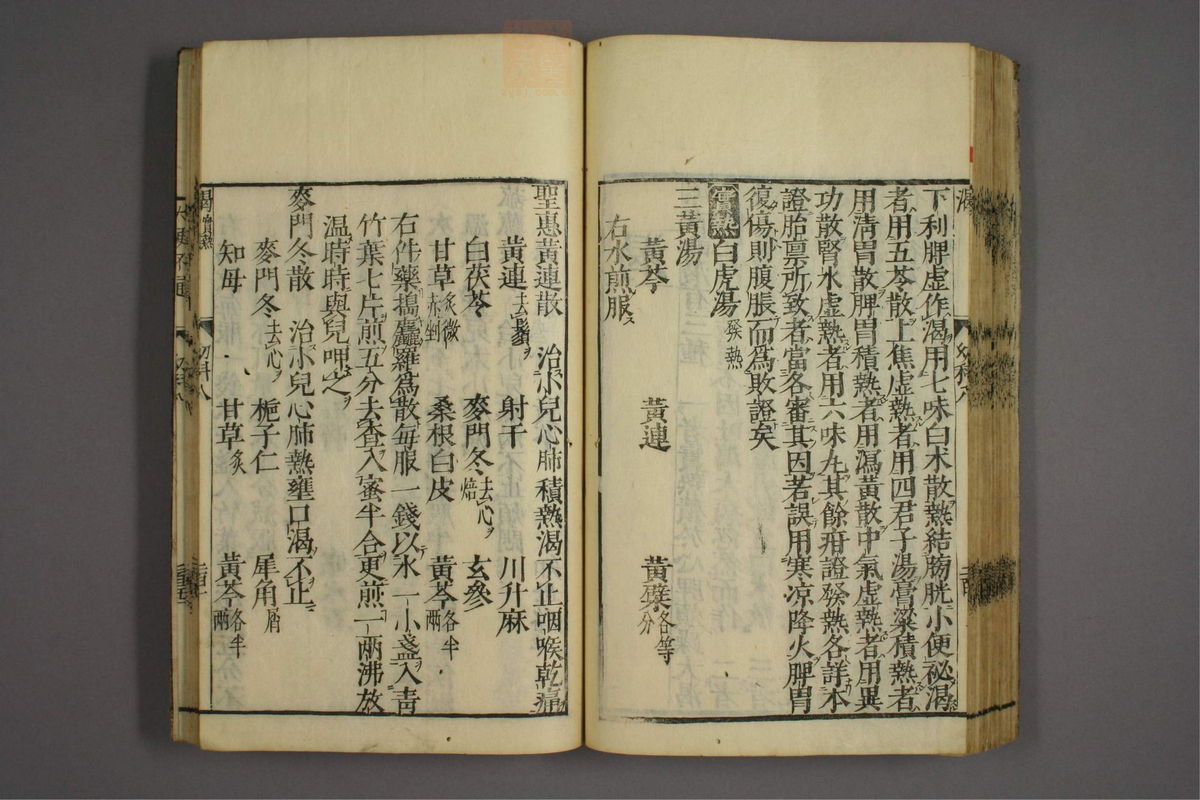 下利脾虛作渴用七味白朮散熱結膀胱小便祕渴
者用五苓散上焦虛熱者用四君子湯膏粱積熱者
用清胃散脾胃積熱者用瀉黃散中氣虛熱者用異
功散腎水虛熱者用六味丸其餘疳證發熱各詳本
證胎禀所致者當各審其因若誤用寒凉降火脾胃
復傷則腹脹而爲敗證矣
實熱白虎湯發熱
三黃湯
黃芩 黃連 黃蘗各等分
右水煎服
聖惠黃連散 治小兒心肺積熱渴不止咽喉乾痛
黃連去鬚 射干 川升麻
白茯苓 麥門冬去心焙 玄參
甘草炙微赤剉 桑根白皮 黃芩各半兩
右件藥搗麤羅爲散每服一錢以水一小盞入青
竹葉七片煎五分去查入蜜半合更煎一兩沸放
温時時與兒呷之
麥門冬散 治小兒心肺熱壅口渴不止
麥門冬去心 梔子仁 犀角屑
知母 甘草炙 黃芩各半兩